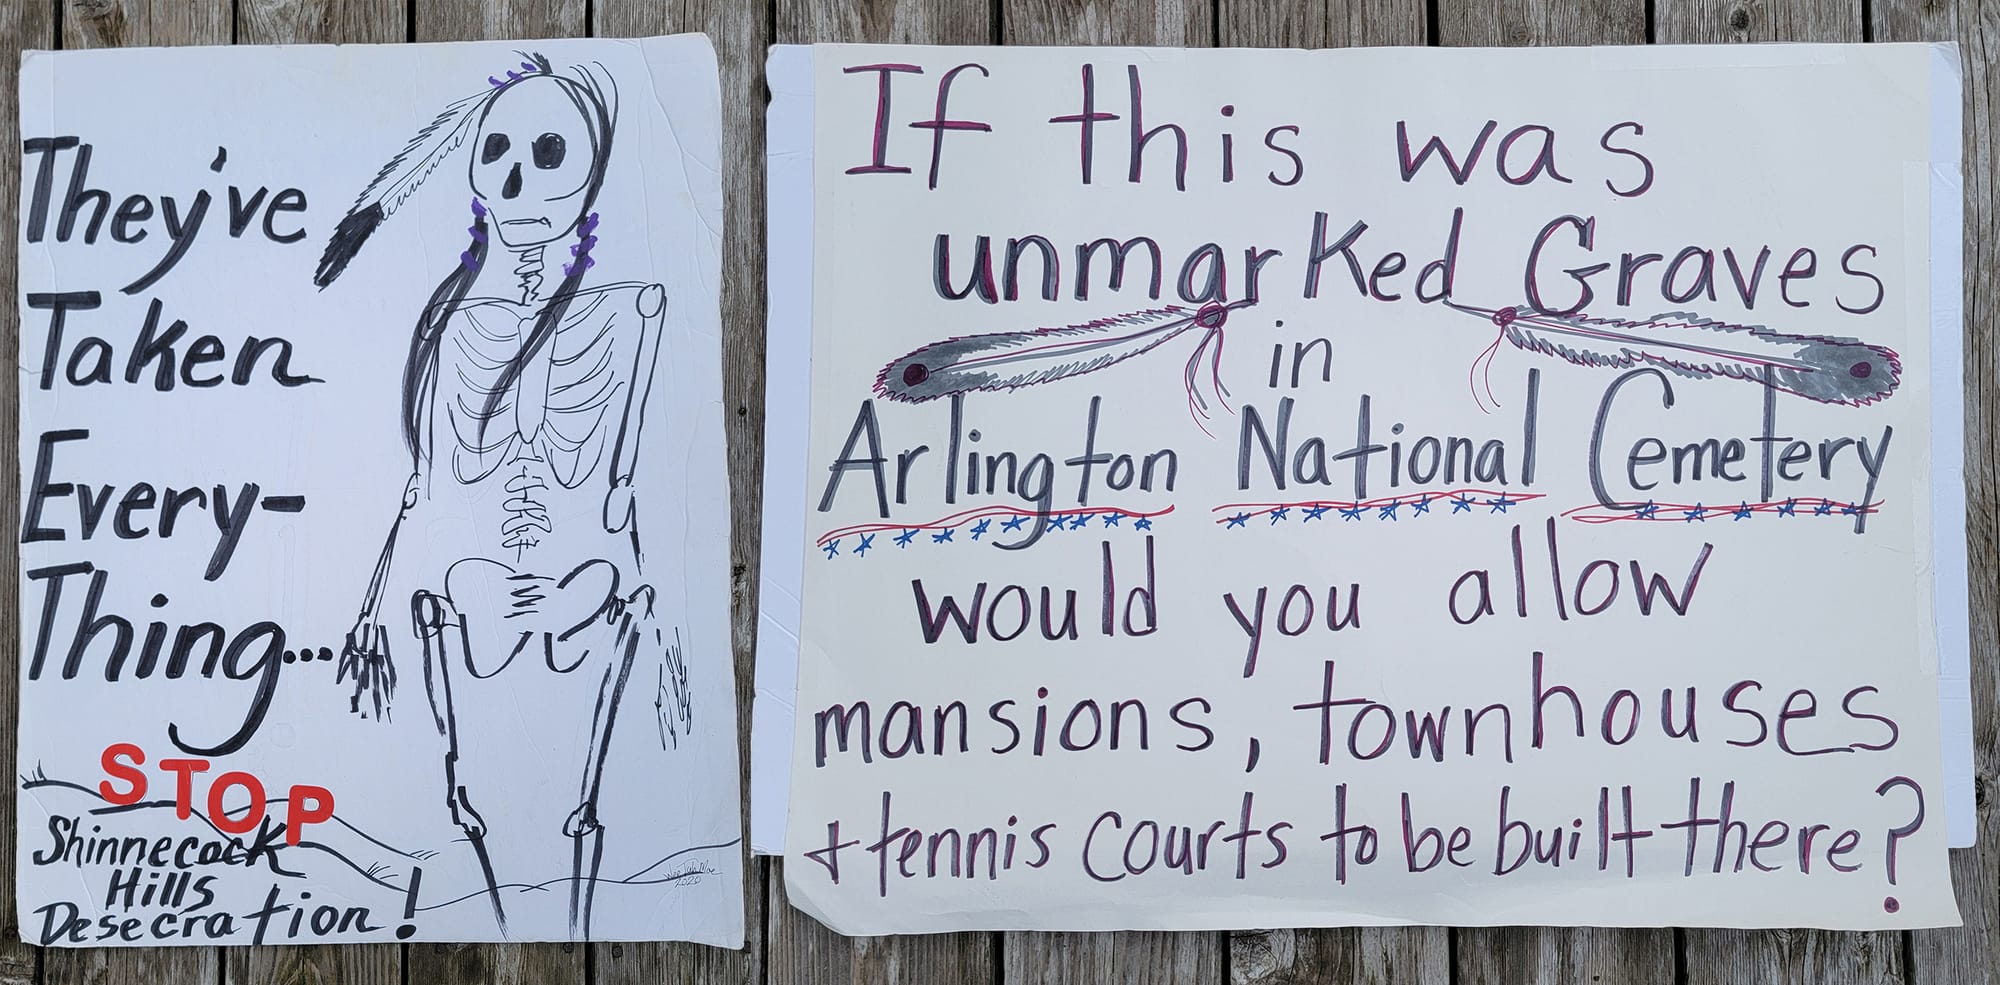 They've
Taken
Every-
Thing...
STOP
Shinnecock
Hills
Desecration!
2020
If this was
unmarked Graves
in
Arlington National Cemetery
would you allow
mansions, townhouses
+ tennis courts to be built there?